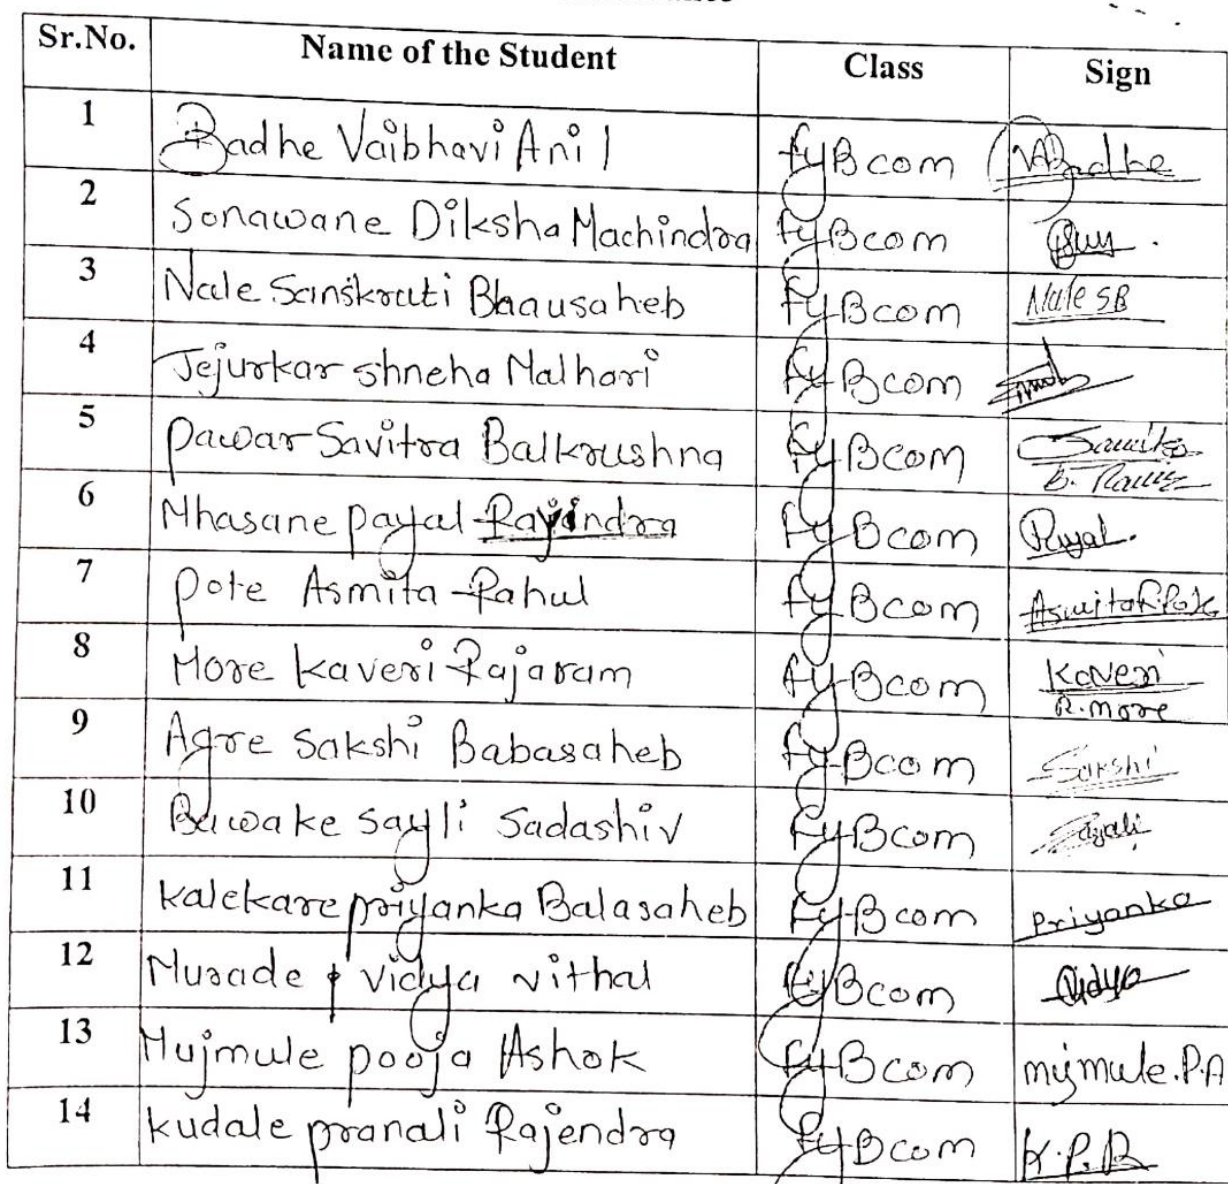 Sr.No. Name of the Student Class Sign
1 Badhe Vaibhavi Anil fyBcom VABadhe
2 Sonawane Diksha Machindra fyBcom
3 Nale Sanskruti Bhausaheb fyBcom Nale SB
4 Jejurkar shneha Malhari fyBcom
5 Pawar Savitra Balkrushna fyBcom
6 Mhasane payal Ravindra fyBcom Payal.
7 Pote Asmita Rahul fyBcom Asmita R.Pote
8 More kaveri Rajaram fyBcom Kaveri
R.more
9 Agre Sakshi Babasaheb fyBcom Sakshi
10 Bawake sayli Sadashiv fyBcom Sayali
11 kalekare priyanka Balasaheb fyBcom Priyanka
12 Murade vidya vithal fyBcom Vidya
13 Mujmule pooja Ashok fyBcom mujmule.P.A
14 kudale pranali Rajendra fyBcom K.P.R